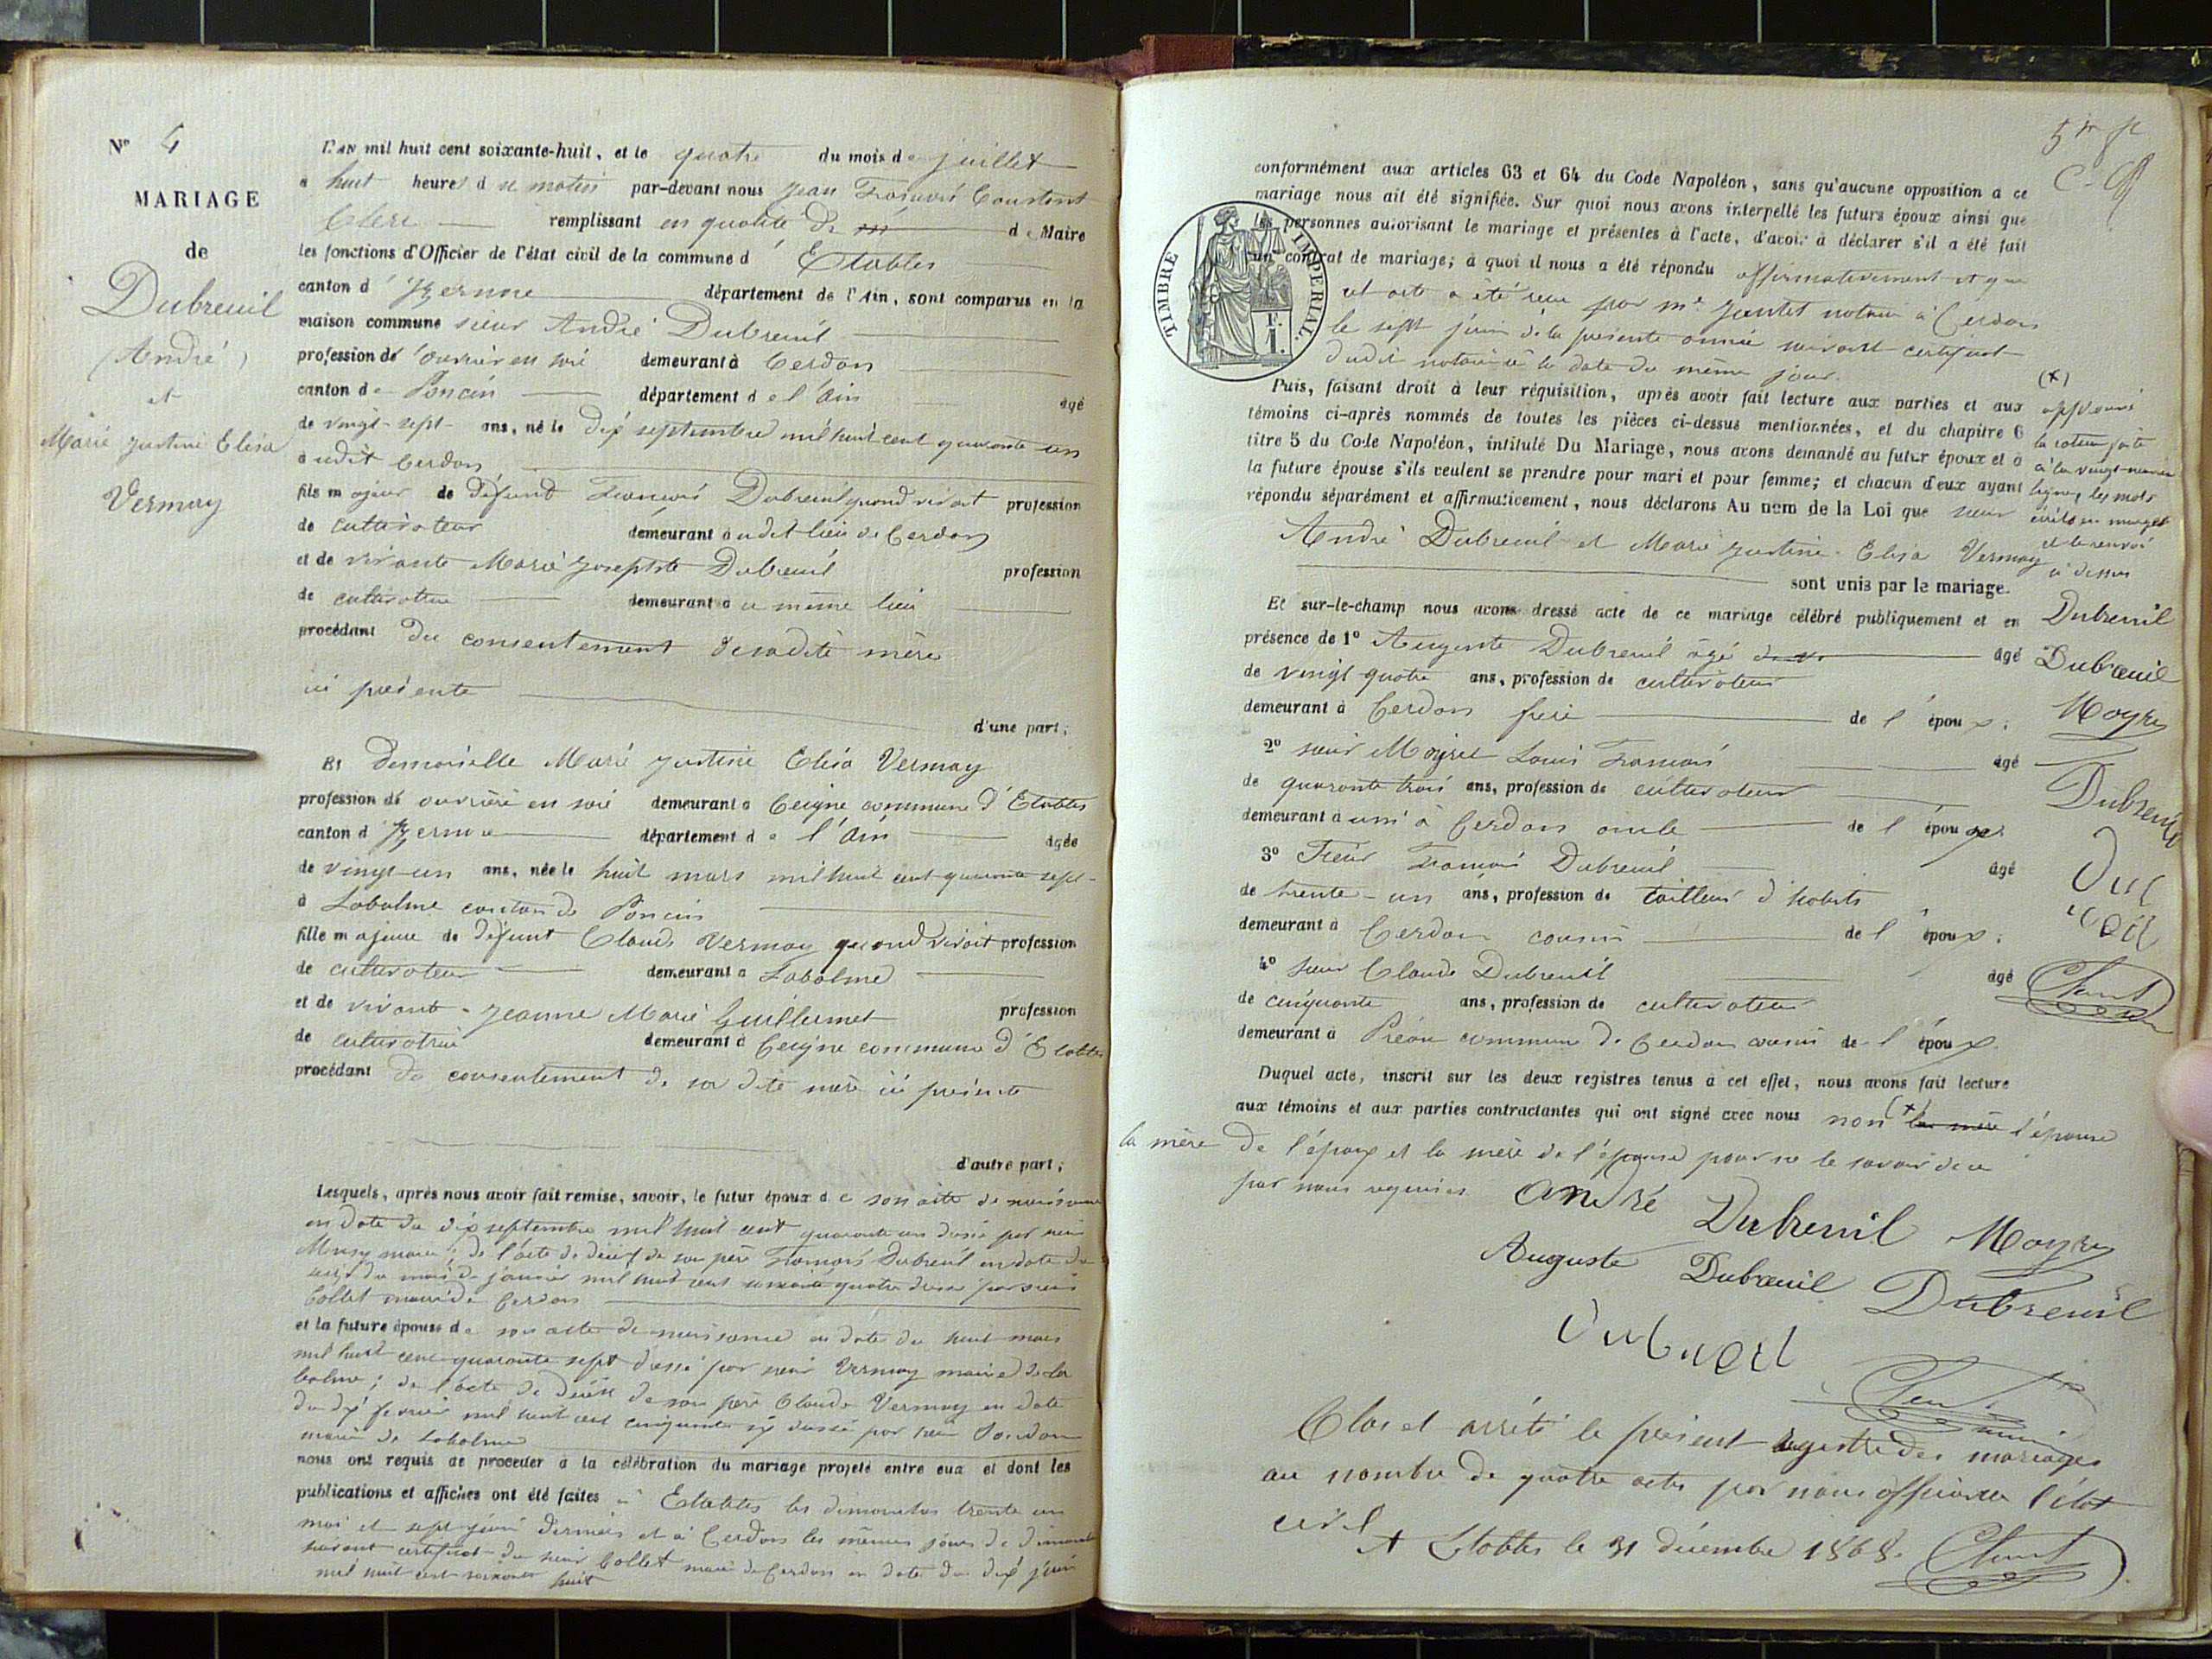 N° 4
MARIAGE
de
Dubreuil
(André)
et
Marie Justine Elisa
Vermay
L'AN mil huit cent soixante-huit, et le quatre du mois de juillet
à huit heures du matin par-devant nous Jean François Constant
Clerc remplissant en qualité de de Maire
les fonctions d'Officier de l'état civil de la commune d'Etables
canton d'Izernore département de l'Ain, sont comparus en la
maison commune sieur André Dubreuil
profession de ouvrier en soie demeurant à Cerdon
canton de Poncin département de l'Ain âgé
de vingt-sept ans, né le dix septembre mil huit cent quarante un
audit Cerdon
fils majeur de défunt François Dubreuil quand vivait profession
de cultivateur demeurant audit lieu de Cerdon
et de vivante Marie Josephte Dubreuil profession
de cultivatrice demeurant à ce même lieu
procédant du consentement de sadite mère
ici présente
d'une part;
Et demoiselle Marie Justine Elisa Vermay
profession de ouvrière en soie demeurant à Ceigne commune d'Etables
canton d'Izernore département de l'Ain âgée
de vingt-un ans, née le huit mars mil huit cent quarante sept
à Labalme canton de Poncin
fille majeure de défunt Claude Vermay quand vivait profession
de cultivateur demeurant à Labalme
et de vivante Jeanne Marie Guillermet profession
de cultivatrice demeurant à Ceigne commune d'Etables
procédant du consentement de sa dite mère ici présente
d'autre part;
Lesquels, après nous avoir fait remise, savoir, le futur époux de son acte de naissance
en date du dix septembre mil huit cent quarante un dressé par sieur
maire; de l'acte de décès de son père François Dubreuil en date du
du mois de janvier mil huit cent soixante quatre dressé par sieur
Collet maire de Cerdon
et la future épouse de son acte de naissance en date du huit mars
mil huit cent quarante sept dressé par sieur Vermay maire de La
balme; de l'acte de décès de son père Claude Vermay en date
du dix février mil huit cent cinquante six dressé par sieur
maire de Labalme
nous ont requis de procéder à la célébration du mariage projeté entre eux et dont les
publications et affiches ont été faites à Etables les dimanches trente un
mai et sept juin derniers et à Cerdon les mêmes jours de dimanche
suivant certificat du sieur Collet maire de Cerdon en date du dix juin
mil huit cent soixante huit
conformément aux articles 63 et 64 du Code Napoléon, sans qu'aucune opposition à ce
mariage nous ait été signifiée. Sur quoi nous avons interpellé les futurs époux ainsi que
les personnes autorisant le mariage et présentes à l'acte, d'avoir à déclarer s'il a été fait
un contrat de mariage; à quoi il nous a été répondu affirmativement et que
cet acte a été reçu par Me Jantet notaire à Cerdon
le sept juin de la présente année suivant certificat
dudit notaire à la date du même jour.
TIMBRE IMPERIAL
Puis, faisant droit à leur réquisition, après avoir fait lecture aux parties et aux
témoins ci-après nommés de toutes les pièces ci-dessus mentionnées, et du chapitre 6
titre 5 du Code Napoléon, intitulé Du Mariage, nous avons demandé au futur époux et à
la future épouse s'ils veulent se prendre pour mari et pour femme; et chacun d'eux ayant
répondu séparément et affirmativement, nous déclarons Au nom de la Loi que sieur
André Dubreuil et Marie Justine Elisa Vermay
sont unis par le mariage.
Et sur-le-champ nous avons dressé acte de ce mariage célébré publiquement et en
présence de 1° Auguste Dubreuil âgé âgé
de vingt quatre ans, profession de cultivateur
demeurant à Cerdon frère de l'époux;
2° sieur Moyret Louis François âgé
de quarante trois ans, profession de cultivateur
demeurant aussi à Cerdon oncle de l'époux
3° Sieur François Dubreuil âgé
de trente-un ans, profession de tailleur d'habits
demeurant à Cerdon cousin de l'époux;
4° sieur Claude Dubreuil âgé
de cinquante ans, profession de cultivateur
demeurant à Préau commune de Cerdon cousin de l'époux
Duquel acte, inscrit sur les deux registres tenus à cet effet, nous avons fait lecture
aux témoins et aux parties contractantes qui ont signé avec nous non (x) la mère l'épouse
la mère de l'époux et la mère de l'épouse pour ne le savoir de ce
par nous requises
(x)
approuvé
la rature faite
à la vingt-neuvième
ligne, les mots
écrits en marge
et le renvoi
ci dessus
Dubreuil
Dubreuil
Moyret
Dubreuil
André Dubreuil Moyret
Auguste Dubreuil Dubreuil
Dubreuil
Clerc
Clos et arrêté le présent registre des mariages
au nombre de quatre actes par nous officier de l'état
civil
A Etables le 31 décembre 1868.